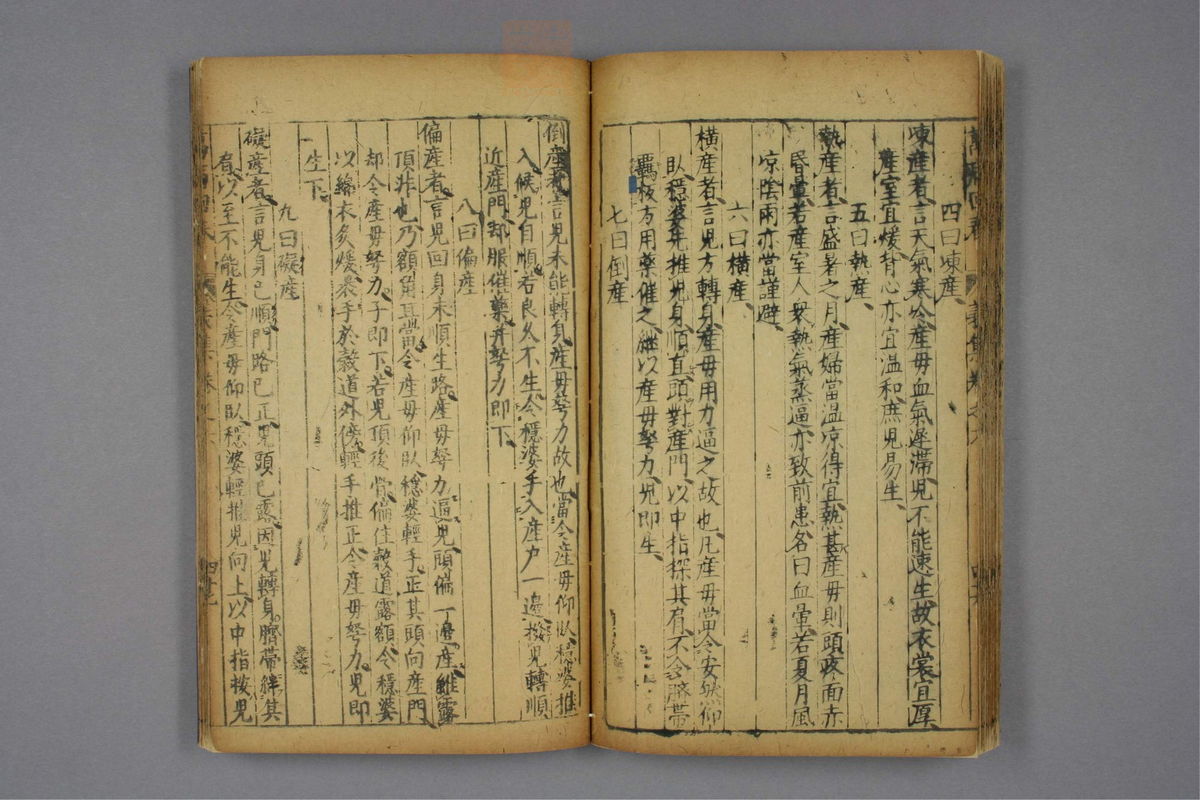 四曰凍產
凍產者言天氣寒冷產母血氣遲滯兒不能速生故衣裳宜厚
產室宜煖背心亦宜温和庶兒易生
五曰熱產
熱產者言盛暑之月產婦當温凉得宜熱甚產母則頭疼面赤
昏暈若產室人衆熱氣蒸逼亦致前患名曰血暈若夏月風
凉陰雨亦當謹避
六曰横產
横產者言兒方轉身產母用力逼之故也凡產母當令安然仰
臥穩婆先推兒身順直頭對產門以中指探其肩不令臍帶
羈扳方用藥催之繼以產母努力兒即生
七曰倒產
倒產者言兒未能轉身產母努力故也當令產母仰臥穩婆推
入候兒自順若良久不生令穩婆手入產户一邊撥兒轉順
近產門却服催藥并努力即下
八曰偏產
偏產者言兒回身未順生路產母努力逼兒頭偏一邊產雖露
頂非也乃額角耳當令產母仰臥穩婆輕手正其頭向產門
却令產母努力子即下若兒頂後骨偏住穀道露額令穩婆
以綿衣炙煖裹手於穀道外傍輕手推正令產母努力兒即
生下
九曰礙產
礙產者言兒身已順門路已正兒頭已露因兒轉身臍帶絆其
肩以至不能生令產母仰臥穩婆輕推兒向上以中指按兒